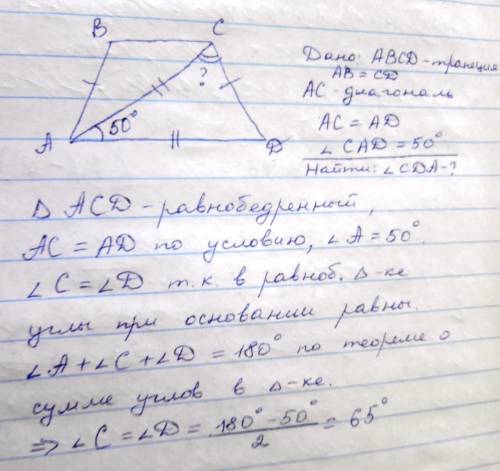 B C
Дано: ABCD - трапеция
AB = CD
AC - диагональ
?
50°
A D
AC = AD
∠ CAD = 50°
Найти: ∠ CDA - ?
Δ ACD - равнобедренный,
AC = AD по условию, ∠ A = 50°.
∠ C = ∠ D т.к. в равноб. Δ-ке
углы при основании равны.
∠ A + ∠ C + ∠ D = 180° по теореме о
сумме углов в Δ-ке.
⇒ ∠ C = ∠ D = (180° - 50°) / 2 = 65°